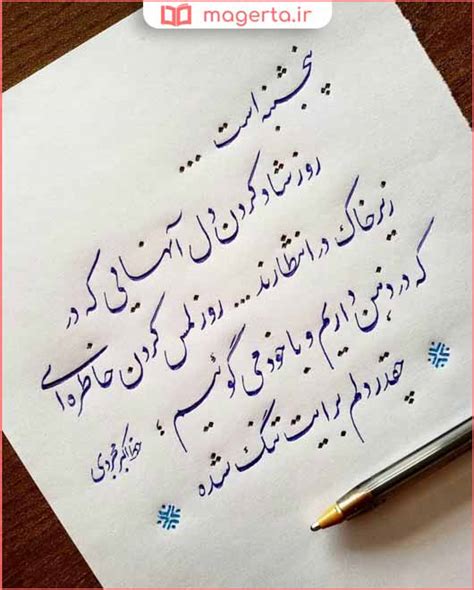 magerta.ir
پنجشنبه است ...
روز شاد کردن دل آنهایی که در
زیر خاک در انتظارند ... روز لمس کردن خاطره‌ای
که در ذهن داریم و با خود می گوئیم ؛
چقدر دلم برایت تنگ شده